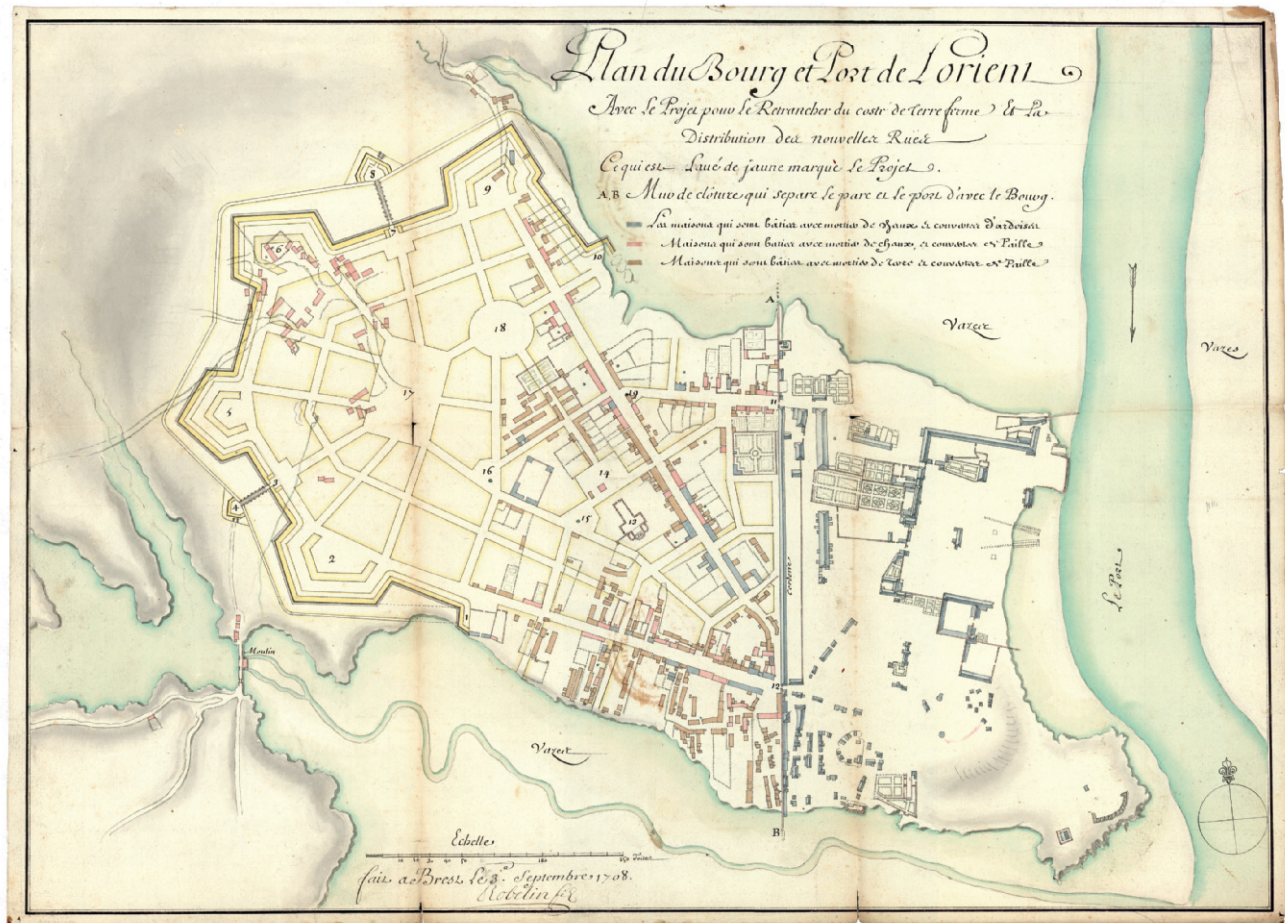 Plan du Bourg et Port de Lorient
Avec le Projet pour le Retrancher du costé de Terre ferme Et la
Distribution des nouvelles Rües
Ce qui est Lavé de jaune marque le Projet.
A, B Mur de clôture qui separe le parc et le port d'avec le Bourg.
Les maisons qui sont bâties avec mortier de chaux et couvertes d'ardoises
Maisons qui sont bâties avec mortier de chaux, et couvertes de Paille
Maisons qui sont bâties avec mortier de terre et couvertes de Paille
8
9
7
6
10
A
Vazes
Vazes
18
17
19
11
5
16
14
3
4
15
13
2
Corderie
Le Port
1
Moulin
12
Vazes
B
Echelle
10 20 30 40 50 100 200 Toises
fait a Brest le 3e. Septembre 1708.
Robelin fil